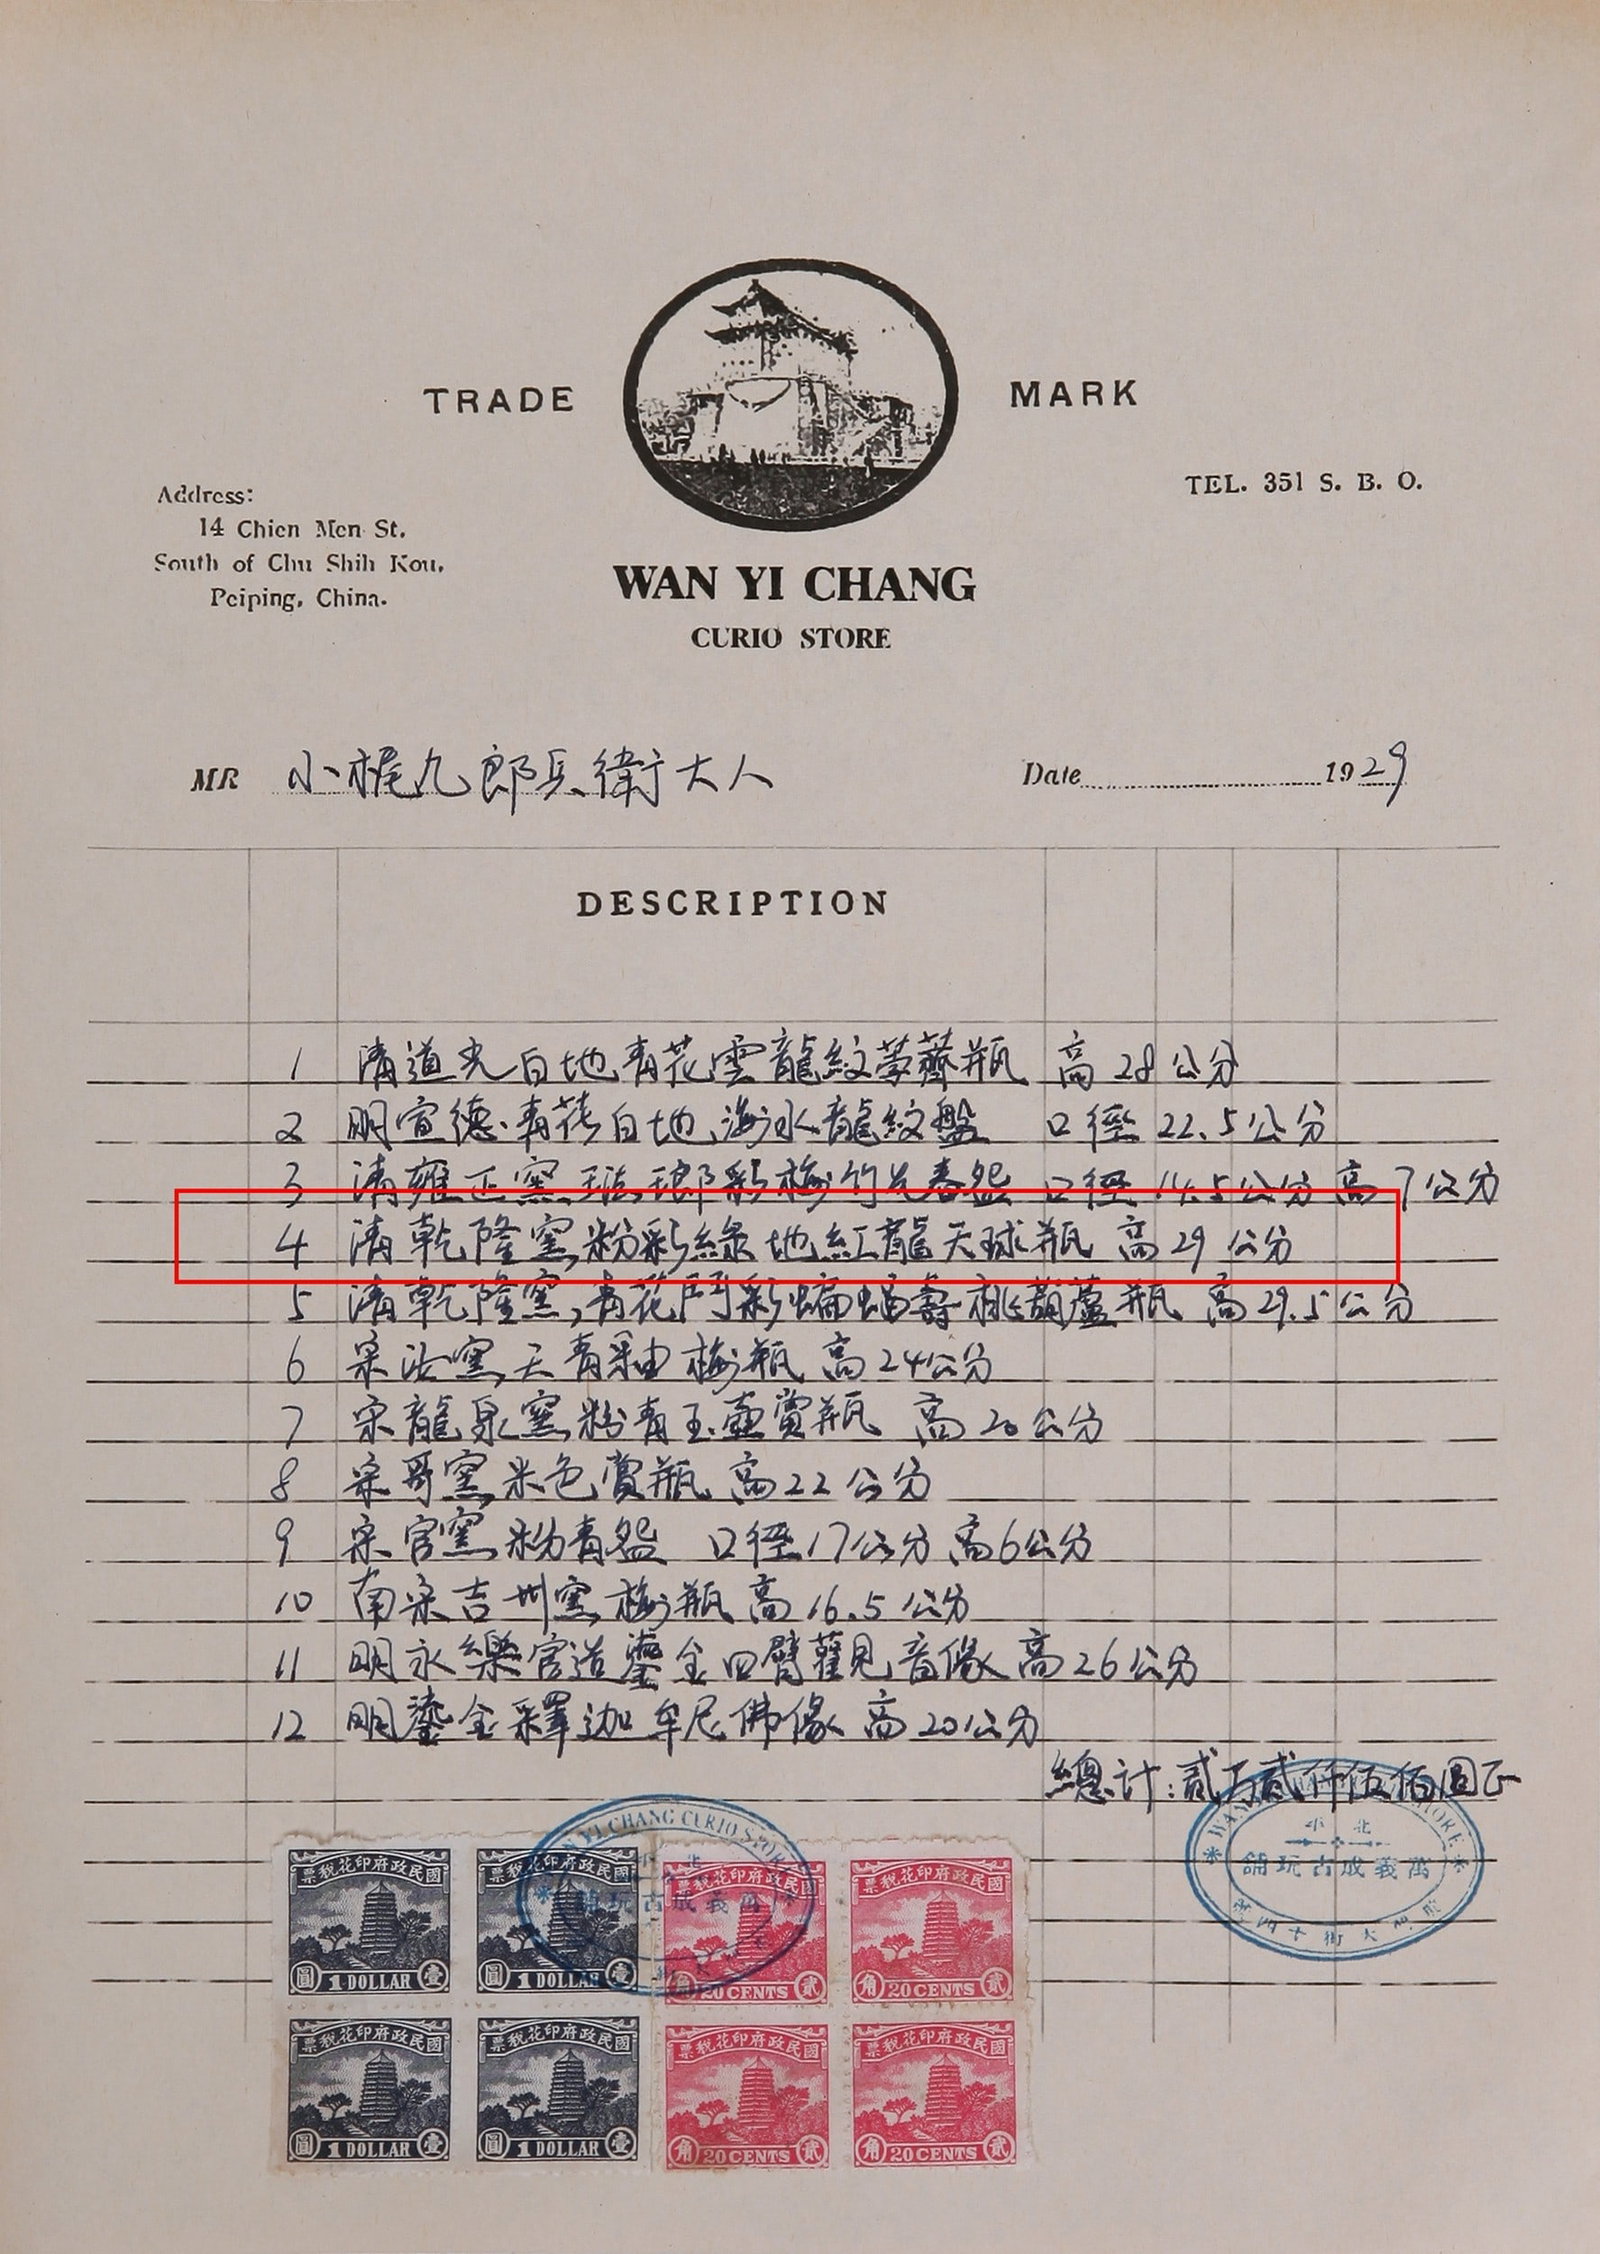 TRADE MARK
Address:
14 Chien Men St.
South of Chu Shih Kou,
Peiping, China.
TEL. 351 S. B. O.
WAN YI CHANG
CURIO STORE
MR 小梶九郎兵衛大人
Date 1929
DESCRIPTION
1 清道光白地青花雲龍紋荸薺瓶 高28公分
2 明宣德青花白地海水龍紋盤 口徑22.5公分
3 清雍正窯琺瑯彩梅竹 春盌 口徑14.5公分高7公分
4 清乾隆窯粉彩綠地紅龍天球瓶 高29公分
5 清乾隆窯,青花鬥彩蝙蝠壽桃葫蘆瓶 高29.5公分
6 宋汝窯天青釉梅瓶 高24公分
7 宋龍泉窯粉青玉壺賞瓶 高20公分
8 宋哥窯米色賞瓶 高22公分
9 宋官窯粉青盌 口徑17公分高6公分
10 南宋吉州窯梅瓶高16.5公分
11 明永樂宮造鎏金四臂觀音像高26公分
12 明鎏金釋迦牟尼佛像高20公分
總计:貳万貳仟伍佰圓正
WAN YI CHANG CURIO STORE
北平
萬義成古玩舖
票稅花印府政民國
圓 1 DOLLAR 壹
票稅花印府政民國
圓 1 DOLLAR 壹
票稅花印府政民國
角 20 CENTS 貳
票稅花印府政民國
角 20 CENTS 貳
票稅花印府政民國
圓 1 DOLLAR 壹
票稅花印府政民國
圓 1 DOLLAR 壹
票稅花印府政民國
角 20 CENTS 貳
票稅花印府政民國
角 20 CENTS 貳